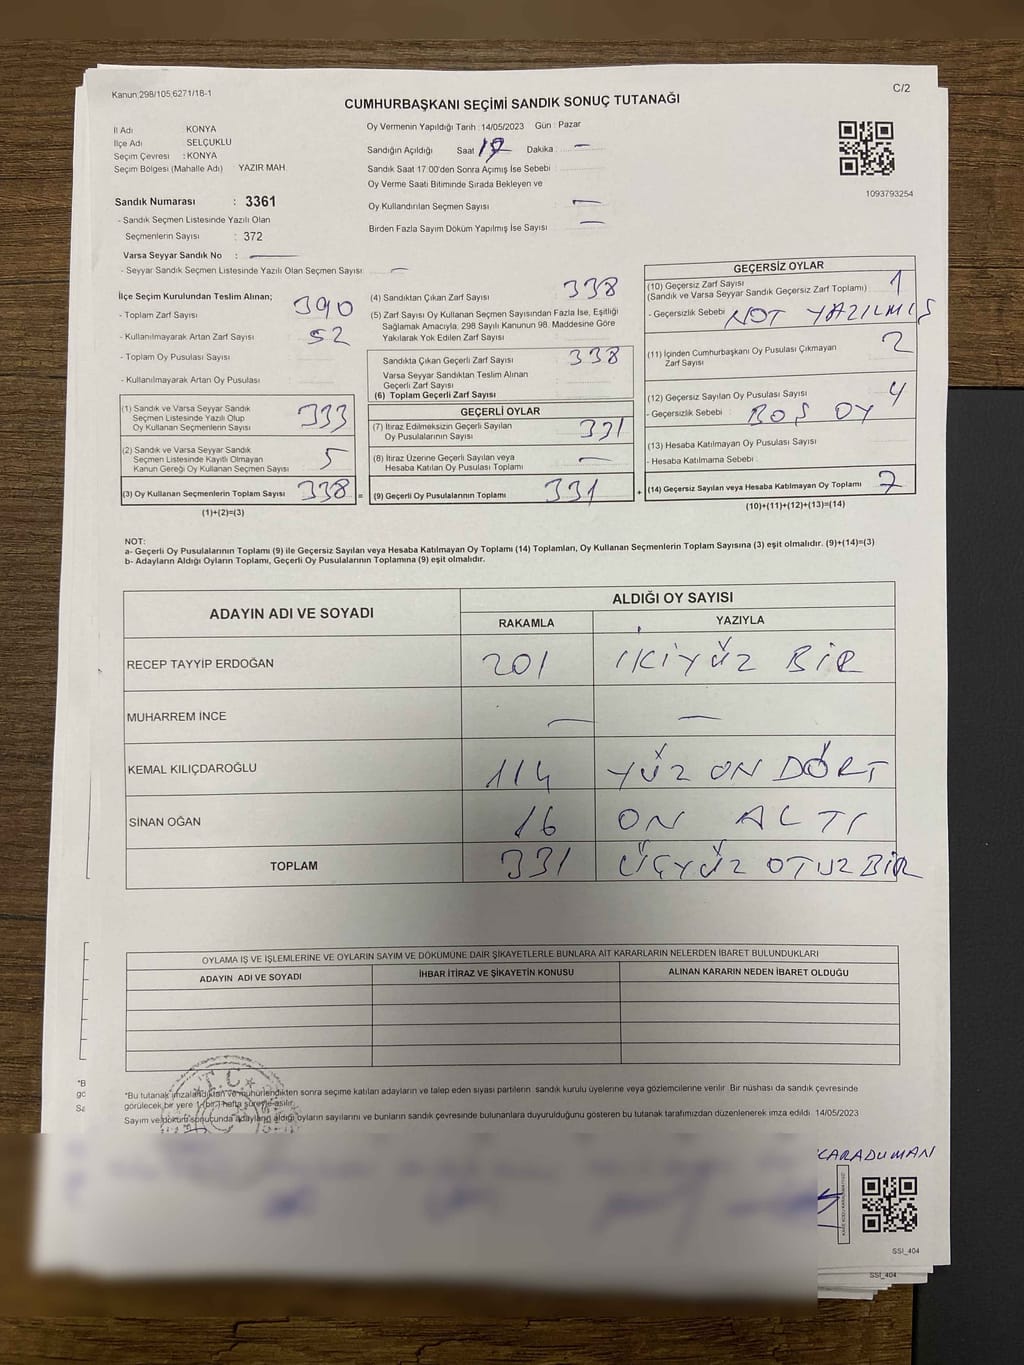 Kanun:298/105,6271/18-1
C/2
CUMHURBAŞKANI SEÇİMİ SANDIK SONUÇ TUTANAĞI
İl Adı KONYA
İlçe Adı SELÇUKLU
Seçim Çevresi : KONYA
Seçim Bölgesi (Mahalle Adı) YAZIR MAH
Sandık Numarası : 3361
- Sandık Seçmen Listesinde Yazılı Olan
Seçmenlerin Sayısı : 372
Varsa Seyyar Sandık No :
- Seyyar Sandık Seçmen Listesinde Yazılı Olan Seçmen Sayısı
Oy Vermenin Yapıldığı Tarih : 14/05/2023 Gün : Pazar
Sandığın Açıldığı Saat 17 Dakika : —
Sandık Saat 17:00'den Sonra Açılmış İse Sebebi :
Oy Verme Saati Bitiminde Sırada Bekleyen ve
Oy Kullandırılan Seçmen Sayısı —
Birden Fazla Sayım Döküm Yapılmış İse Sayısı —
1093793254
İlçe Seçim Kurulundan Teslim Alınan;
- Toplam Zarf Sayısı 390
- Kullanılmayarak Artan Zarf Sayısı 52
- Toplam Oy Pusulası Sayısı
- Kullanılmayarak Artan Oy Pusulası
(1) Sandık ve Varsa Seyyar Sandık
Seçmen Listesinde Yazılı Olup
Oy Kullanan Seçmenlerin Sayısı 333
(2) Sandık ve Varsa Seyyar Sandık
Seçmen Listesinde Kayıtlı Olmayan
Kanun Gereği Oy Kullanan Seçmen Sayısı 5
(3) Oy Kullanan Seçmenlerin Toplam Sayısı 338 =
(1)+(2)=(3)
(4) Sandıktan Çıkan Zarf Sayısı 338
(5) Zarf Sayısı Oy Kullanan Seçmen Sayısından Fazla İse, Eşitliği
Sağlamak Amacıyla, 298 Sayılı Kanunun 98. Maddesine Göre
Yakılarak Yok Edilen Zarf Sayısı
Sandıkta Çıkan Geçerli Zarf Sayısı 338
Varsa Seyyar Sandıktan Teslim Alınan
Geçerli Zarf Sayısı
(6) Toplam Geçerli Zarf Sayısı
GEÇERLİ OYLAR
(7) İtiraz Edilmeksizin Geçerli Sayılan
Oy Pusulalarının Sayısı 331
(8) İtiraz Üzerine Geçerli Sayılan veya
Hesaba Katılan Oy Pusulası Toplamı —
(9) Geçerli Oy Pusulalarının Toplamı 331 +
GEÇERSİZ OYLAR
(10) Geçersiz Zarf Sayısı
(Sandık ve Varsa Seyyar Sandık Geçersiz Zarf Toplamı) 1
- Geçersizlik Sebebi : NOT YAZILMIŞ
(11) İçinden Cumhurbaşkanı Oy Pusulası Çıkmayan
Zarf Sayısı 2
(12) Geçersiz Sayılan Oy Pusulası Sayısı 4
- Geçersizlik Sebebi : BOŞ OY
(13) Hesaba Katılmayan Oy Pusulası Sayısı
- Hesaba Katılmama Sebebi :
(14) Geçersiz Sayılan veya Hesaba Katılmayan Oy Toplamı 7
(10)+(11)+(12)+(13)=(14)
NOT:
a- Geçerli Oy Pusulalarının Toplamı (9) ile Geçersiz Sayılan veya Hesaba Katılmayan Oy Toplamı (14) Toplamları, Oy Kullanan Seçmenlerin Toplam Sayısına (3) eşit olmalıdır. (9)+(14)=(3)
b- Adayların Aldığı Oyların Toplamı, Geçerli Oy Pusulalarının Toplamına (9) eşit olmalıdır.
ADAYIN ADI VE SOYADI ALDIĞI OY SAYISI
RAKAMLA YAZIYLA
RECEP TAYYİP ERDOĞAN 201 İKİYÜZ BİR
MUHARREM İNCE — —
KEMAL KILIÇDAROĞLU 114 YÜZ ON DÖRT
SİNAN OĞAN 16 ON ALTI
TOPLAM 331 ÜÇYÜZ OTUZ BİR
OYLAMA İŞ VE İŞLEMLERİNE VE OYLARIN SAYIM VE DÖKÜMÜNE DAİR ŞİKAYETLERLE BUNLARA AİT KARARLARIN NELERDEN İBARET BULUNDUKLARI
ADAYIN ADI VE SOYADI İHBAR İTİRAZ VE ŞİKAYETİN KONUSU ALINAN KARARIN NEDEN İBARET OLDUĞU
T.C.
*Bu tutanak imzalandıktan ve mühürlendikten sonra seçime katılan adayların ve talep eden siyasi partilerin sandık kurulu üyelerine veya gözlemcilerine verilir. Bir nüshası da sandık çevresinde
görülecek bir yere 1 (bir) hafta süreyle asılır.
Sayım ve döküm sonucunda adayların aldığı oyların sayılarını ve bunların sandık çevresinde bulunanlara duyurulduğunu gösteren bu tutanak tarafımızdan düzenlenerek imza edildi. 14/05/2023
KARADUMAN
SSI_404
SSI_404